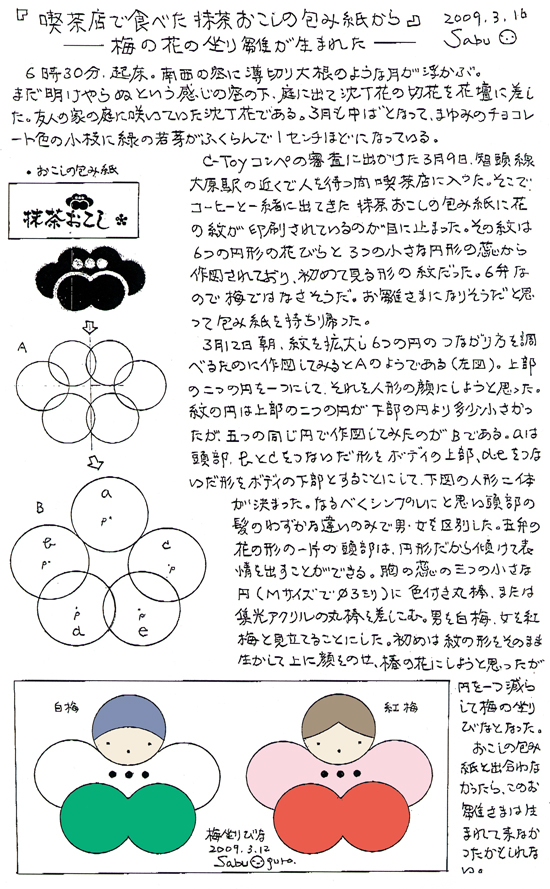 『喫茶店で食べた抹茶おこしの包み紙から』
2009.3.16
―― 梅の花の坐り雛が生まれた ――
Sabu
6時30分、起床。南西の空に薄切り大根のような月が浮かぶ。
まだ明けやらぬという感じの空の下、庭に出て沈丁花の切花を花壇に差し
た。友人の家の庭に咲いていた沈丁花である。3月も中ばとなって、まゆみのチョコレ
ート色の小枝に緑の若芽がふくらんで1センチほどになっている。
C-Toyコンペの審査に出かけた3月9日、智頭線
大原駅の近くで人を待つ間喫茶店に入った。そこで
コーヒーと一緒に出てきた抹茶おこしの包み紙に花
の紋が印刷されているのが目に止まった。その紋は
6つの円形の花びらと3つの小さな円形の蕊から
作図されており、初めて見る形の紋だった。6弁な
ので梅ではなさそうだ。お雛さまになりそうだと思
って包み紙を持ち帰った。
3月12日朝、紋を拡大し6つの円のつながり方を調
べるために作図してみるとAのようである(左図)。上部
の二つの円を一つにして、それを人形の顔にしようと思った。
紋の円は上部の二つの円が下部の円より多少小さかっ
たが、五つの同じ円で作図してみたのがBである。aは
頭部、bとcをつないだ形をボディの上部、deをつな
いだ形をボディの下部とすることにして、下図の人形二体
が決まった。なるべくシンプルにと思い頭部の
髪のわずかな違いのみで男・女を区別した。五弁の
花の形の一片の頭部は、円形だから傾けて表
情を出すことができる。胸の蕊の三つの小さな
円(Mサイズでφ3ミリ)に色付き丸棒、または
集光アクリルの丸棒を差しこむ。男を白梅、女を紅
梅と見立てることにした。初めは紋の形をそのまま
生かして上に顔をのせ、椿の花にしようと思ったが
円を一つ減ら
して梅の坐り
びなとなった。
おこしの包み
紙と出合わな
かったら、このお
雛さまは生
まれて来な
かったかもしれな
い。
•おこしの包み紙
抹茶おこし
A
B
a
p
b
p
c
p
p
d
p
e
白梅
紅梅
梅坐りびな
2009.3.12
Sabu Oguro.